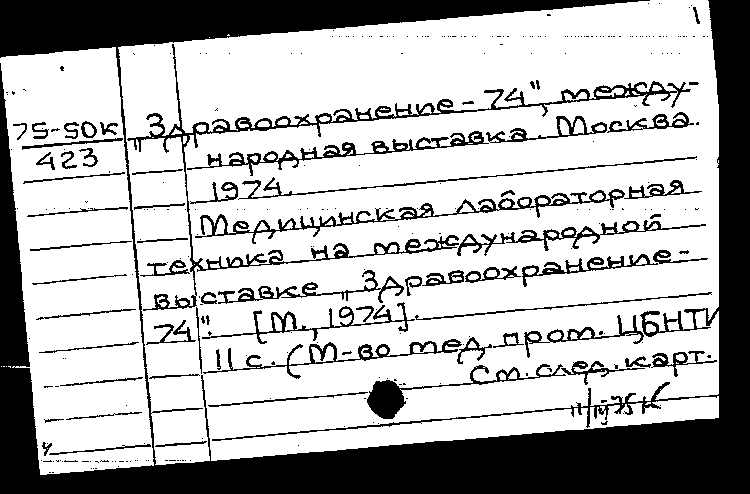 1
75-50К
423
„Здравоохранение-74", между-
народная выставка. Москва.
1974.
Медицинская лабораторная
техника на международной
выставке „Здравоохранение-
74". [М., 1974].
11 с. (М-во мед. пром. ЦБНТИ
См. след. карт.